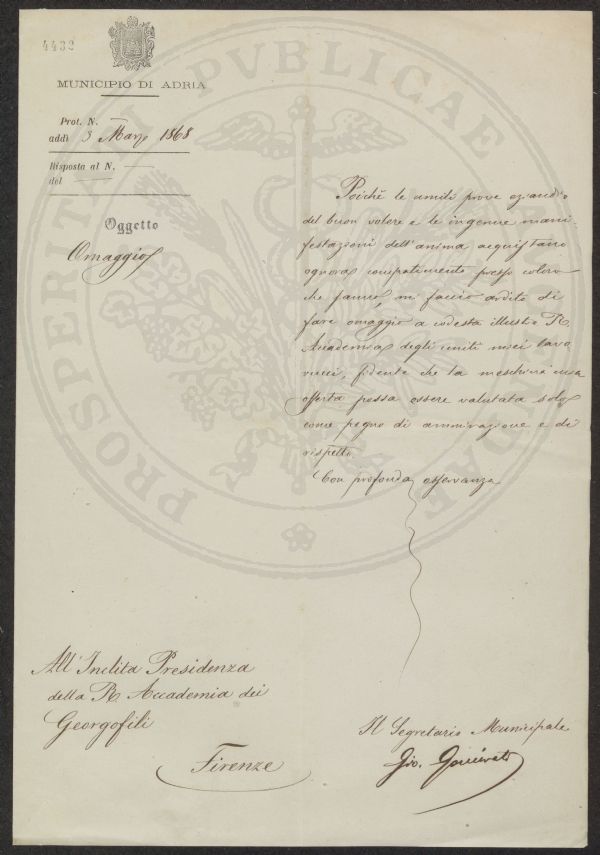 4432
MUNICIPIO DI ADRIA
Prot. N. —
addì 3 Marzo 1868
Risposta al N. —
del —
Oggetto
Omaggio
Poichè le umili prove eziandio
del buon volere e le ingenue mani
festazioni dell'anima acquistano
ognora compatimento presso coloro
che fanno, mi faccio ardito di
fare omaggio a codesta illustre R.
Accademia degli umili miei lavo
rucci, fidente che la meschinissima
offerta possa essere valutata solo
come pegno di ammirazione e di
rispetto.
Con profonda osservanza
All'Inclita Presidenza
della R. Accademia dei
Georgofili
Firenze
Il Segretario Municipale
Gio.
PROSPERITATI PVBLICAE AVGENDAE